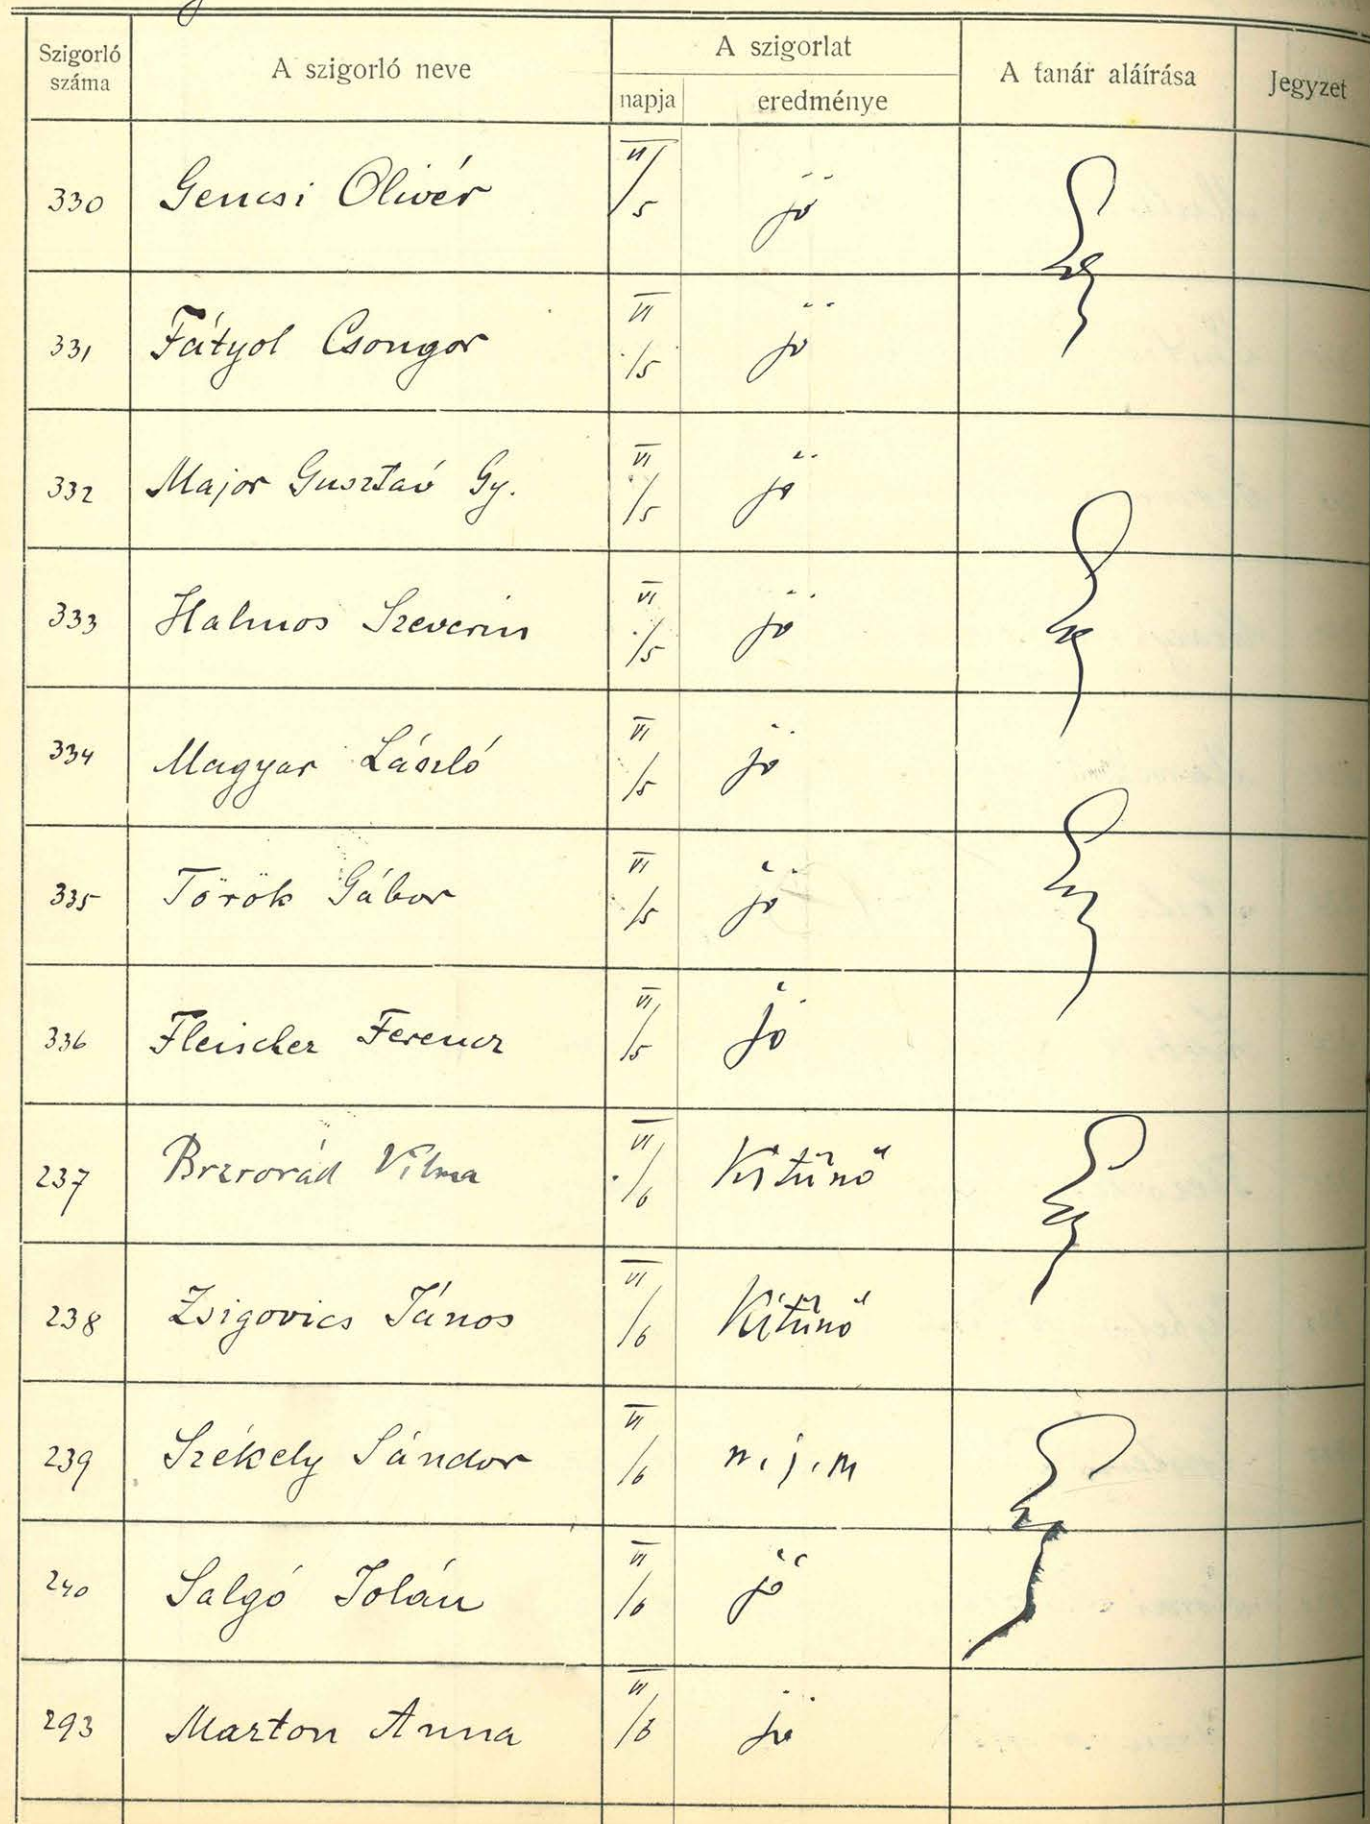 Szigorló száma | A szigorló neve | A szigorlat napja | A szigorlat eredménye | A tanár aláírása | Jegyzet
330 Gencsi Olivér VI/5 jó
331 Fátyol Csongor VI/5 jó
332 Major Gusztáv Gy. VI/5 jó
333 Halmos Szeverin VI/5 jó
334 Magyar László VI/5 jó
335 Török Gábor VI/5 jó
336 Fleischer Ferencz VI/5 jó
237 Brzrorád Vilma VI/6 Kitűnő
238 Zsigovics János VI/6 Kitűnő
239 Székely Sándor VI/6 n.j.m
240 Salgó Jolán VI/6 jó
293 Marton Anna VI/6 jó